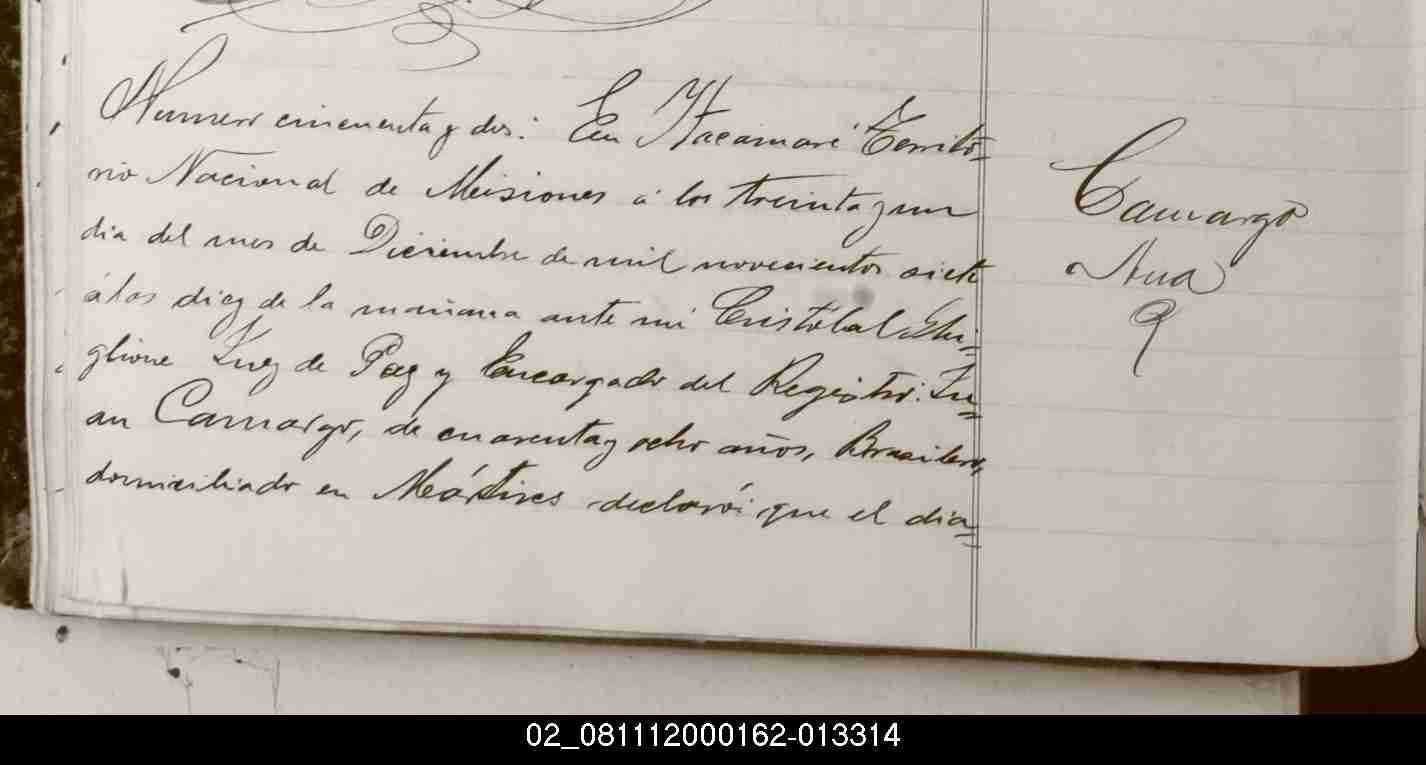 Numero cincuenta y dos: En Itacaruaré Territo-
rio Nacional de Misiones á los treinta y un
dia del mes de Diciembre de mil novecientos siete
á las diez de la mañana ante mi Cristóbal Ghi-
glione Juez de Paz y Encargado del Registro: Ju-
an Camargo, de cuarenta y ocho años, Brasilero,
domiciliado en Mártires declaró: que el dia
Camargo
Ana
02_081112000162-013314